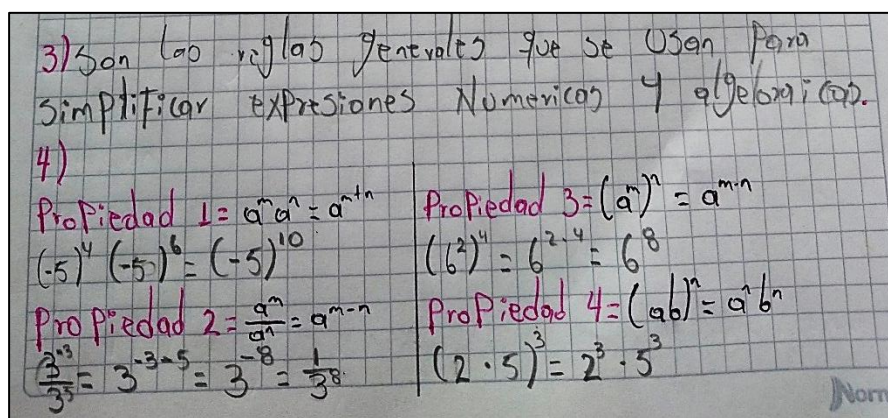 3) Son las reglas generales que se usan para
simplificar expresiones Numericas y algebraicas.
4)
Propiedad 1= aᵐaⁿ = aᵐ⁺ⁿ
(-5)⁴ (-5)⁶ = (-5)¹⁰
Propiedad 2= aᵐ/aⁿ = aᵐ⁻ⁿ
3⁻³/3⁵ = 3⁻³⁻⁵ = 3⁻⁸ = 1/3⁸
Propiedad 3= (aᵐ)ⁿ = aᵐ·ⁿ
(6²)⁴ = 6²·⁴ = 6⁸
Propiedad 4= (ab)ⁿ = aⁿbⁿ
(2·5)³ = 2³·5³
Norm